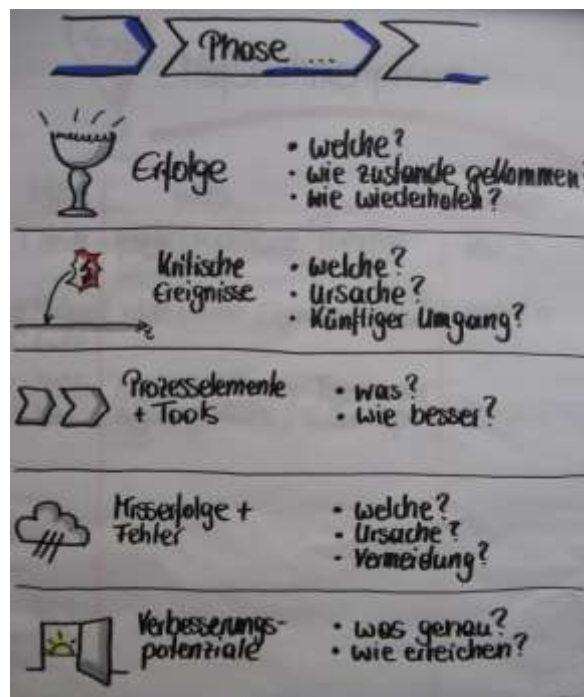 Phase ...
Erfolge
• welche?
• wie zustande gekommen?
• wie wiederholen?
Kritische
Ereignisse
• welche?
• Ursache?
• Künftiger Umgang?
Prozesselemente
+ Tools
• was?
• wie besser?
Misserfolge +
Fehler
• welche?
• Ursache?
• Vermeidung?
Verbesserungs-
potenziale
• was genau?
• wie erreichen?